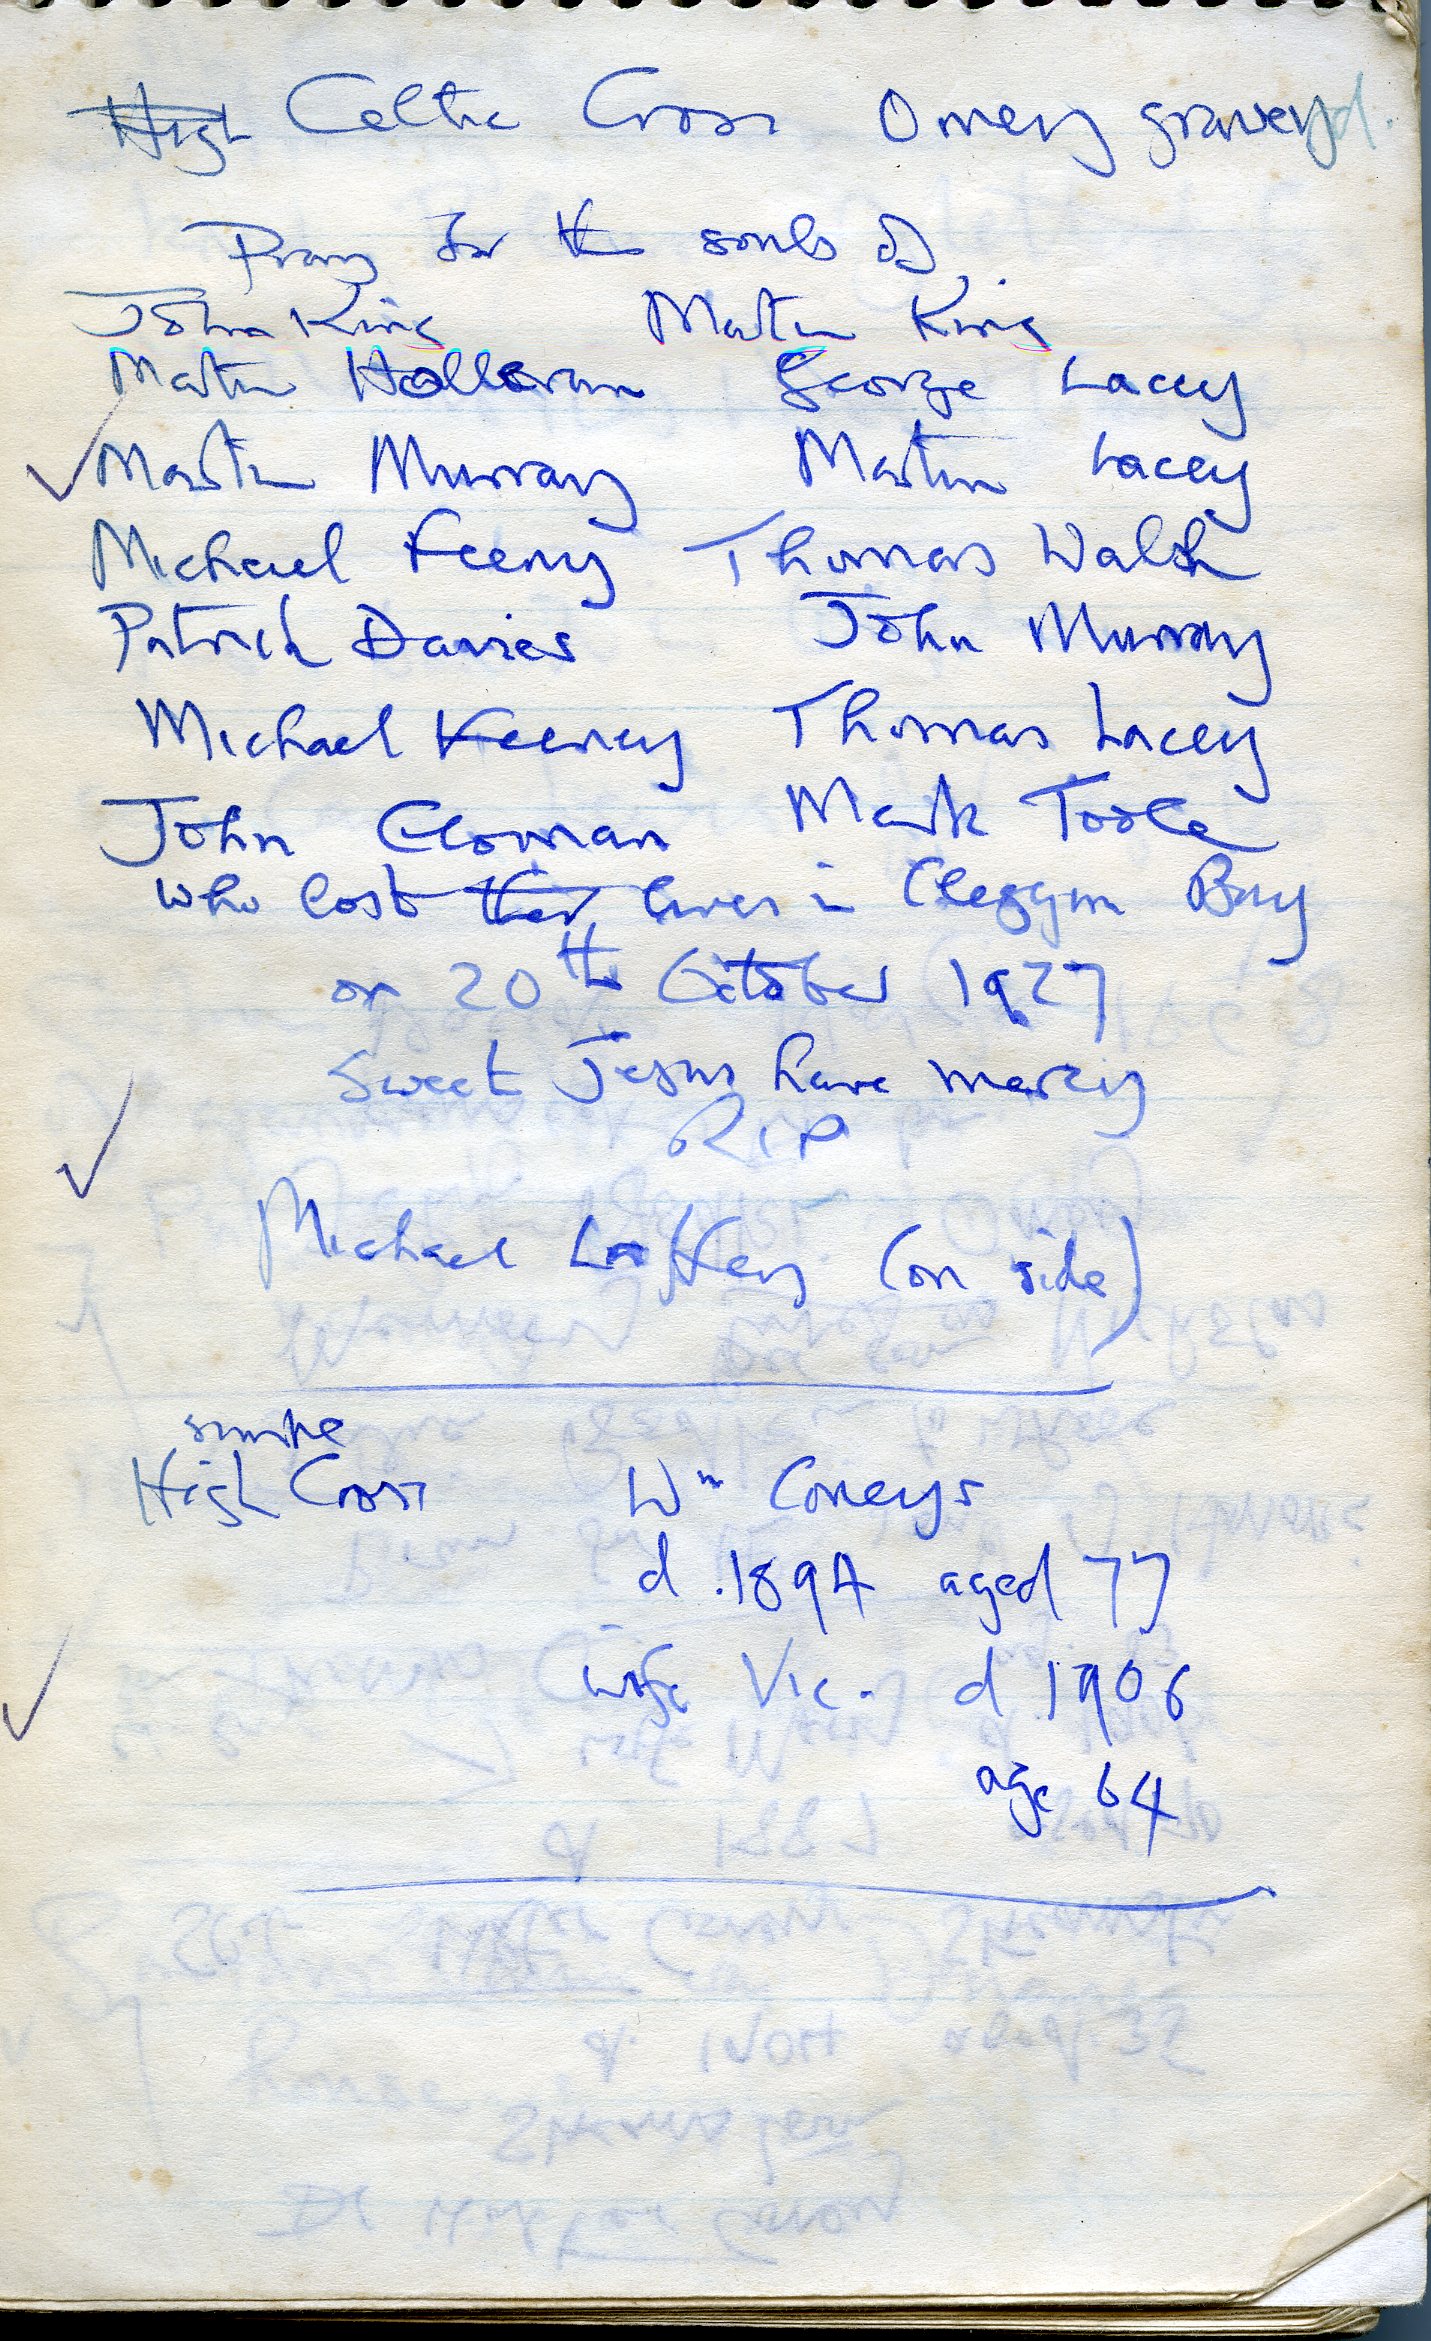 High Celtic Cross Omey graveyd.
Pray for the souls of
John King Martin King
Martin Halloran George Lacey
Martin Murray Martin Lacey
Michael Feeny Thomas Walsh
Patrick Davies John Murray
Michael Keeney Thomas Lacey
John Cloman Mark Toole
who lost their lives in Cleggan Bay
on 20th October 1927
Sweet Jesus have mercy
RIP
Michael Laffey (on side)
simple
High Cross Wm Coneys
d. 1894 aged 77
wife Vic. d 1906
age 64